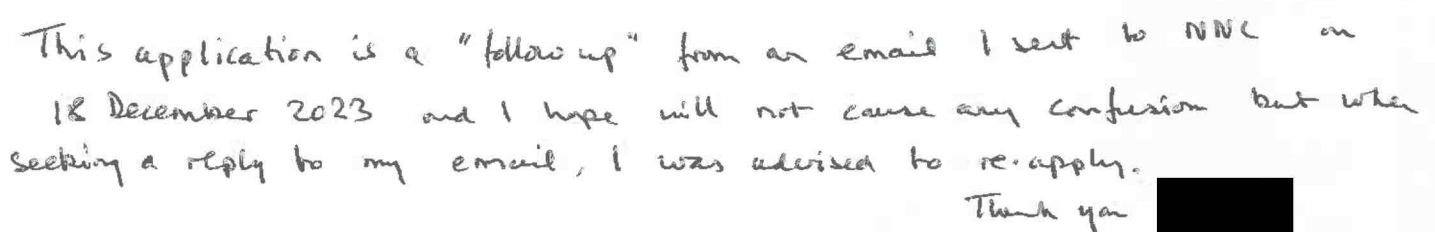 This application is a "follow up" from an email I sent to NNC on
18 December 2023 and I hope will not cause any confusion but when
seeking a reply to my email, I was advised to re-apply.
Thank you